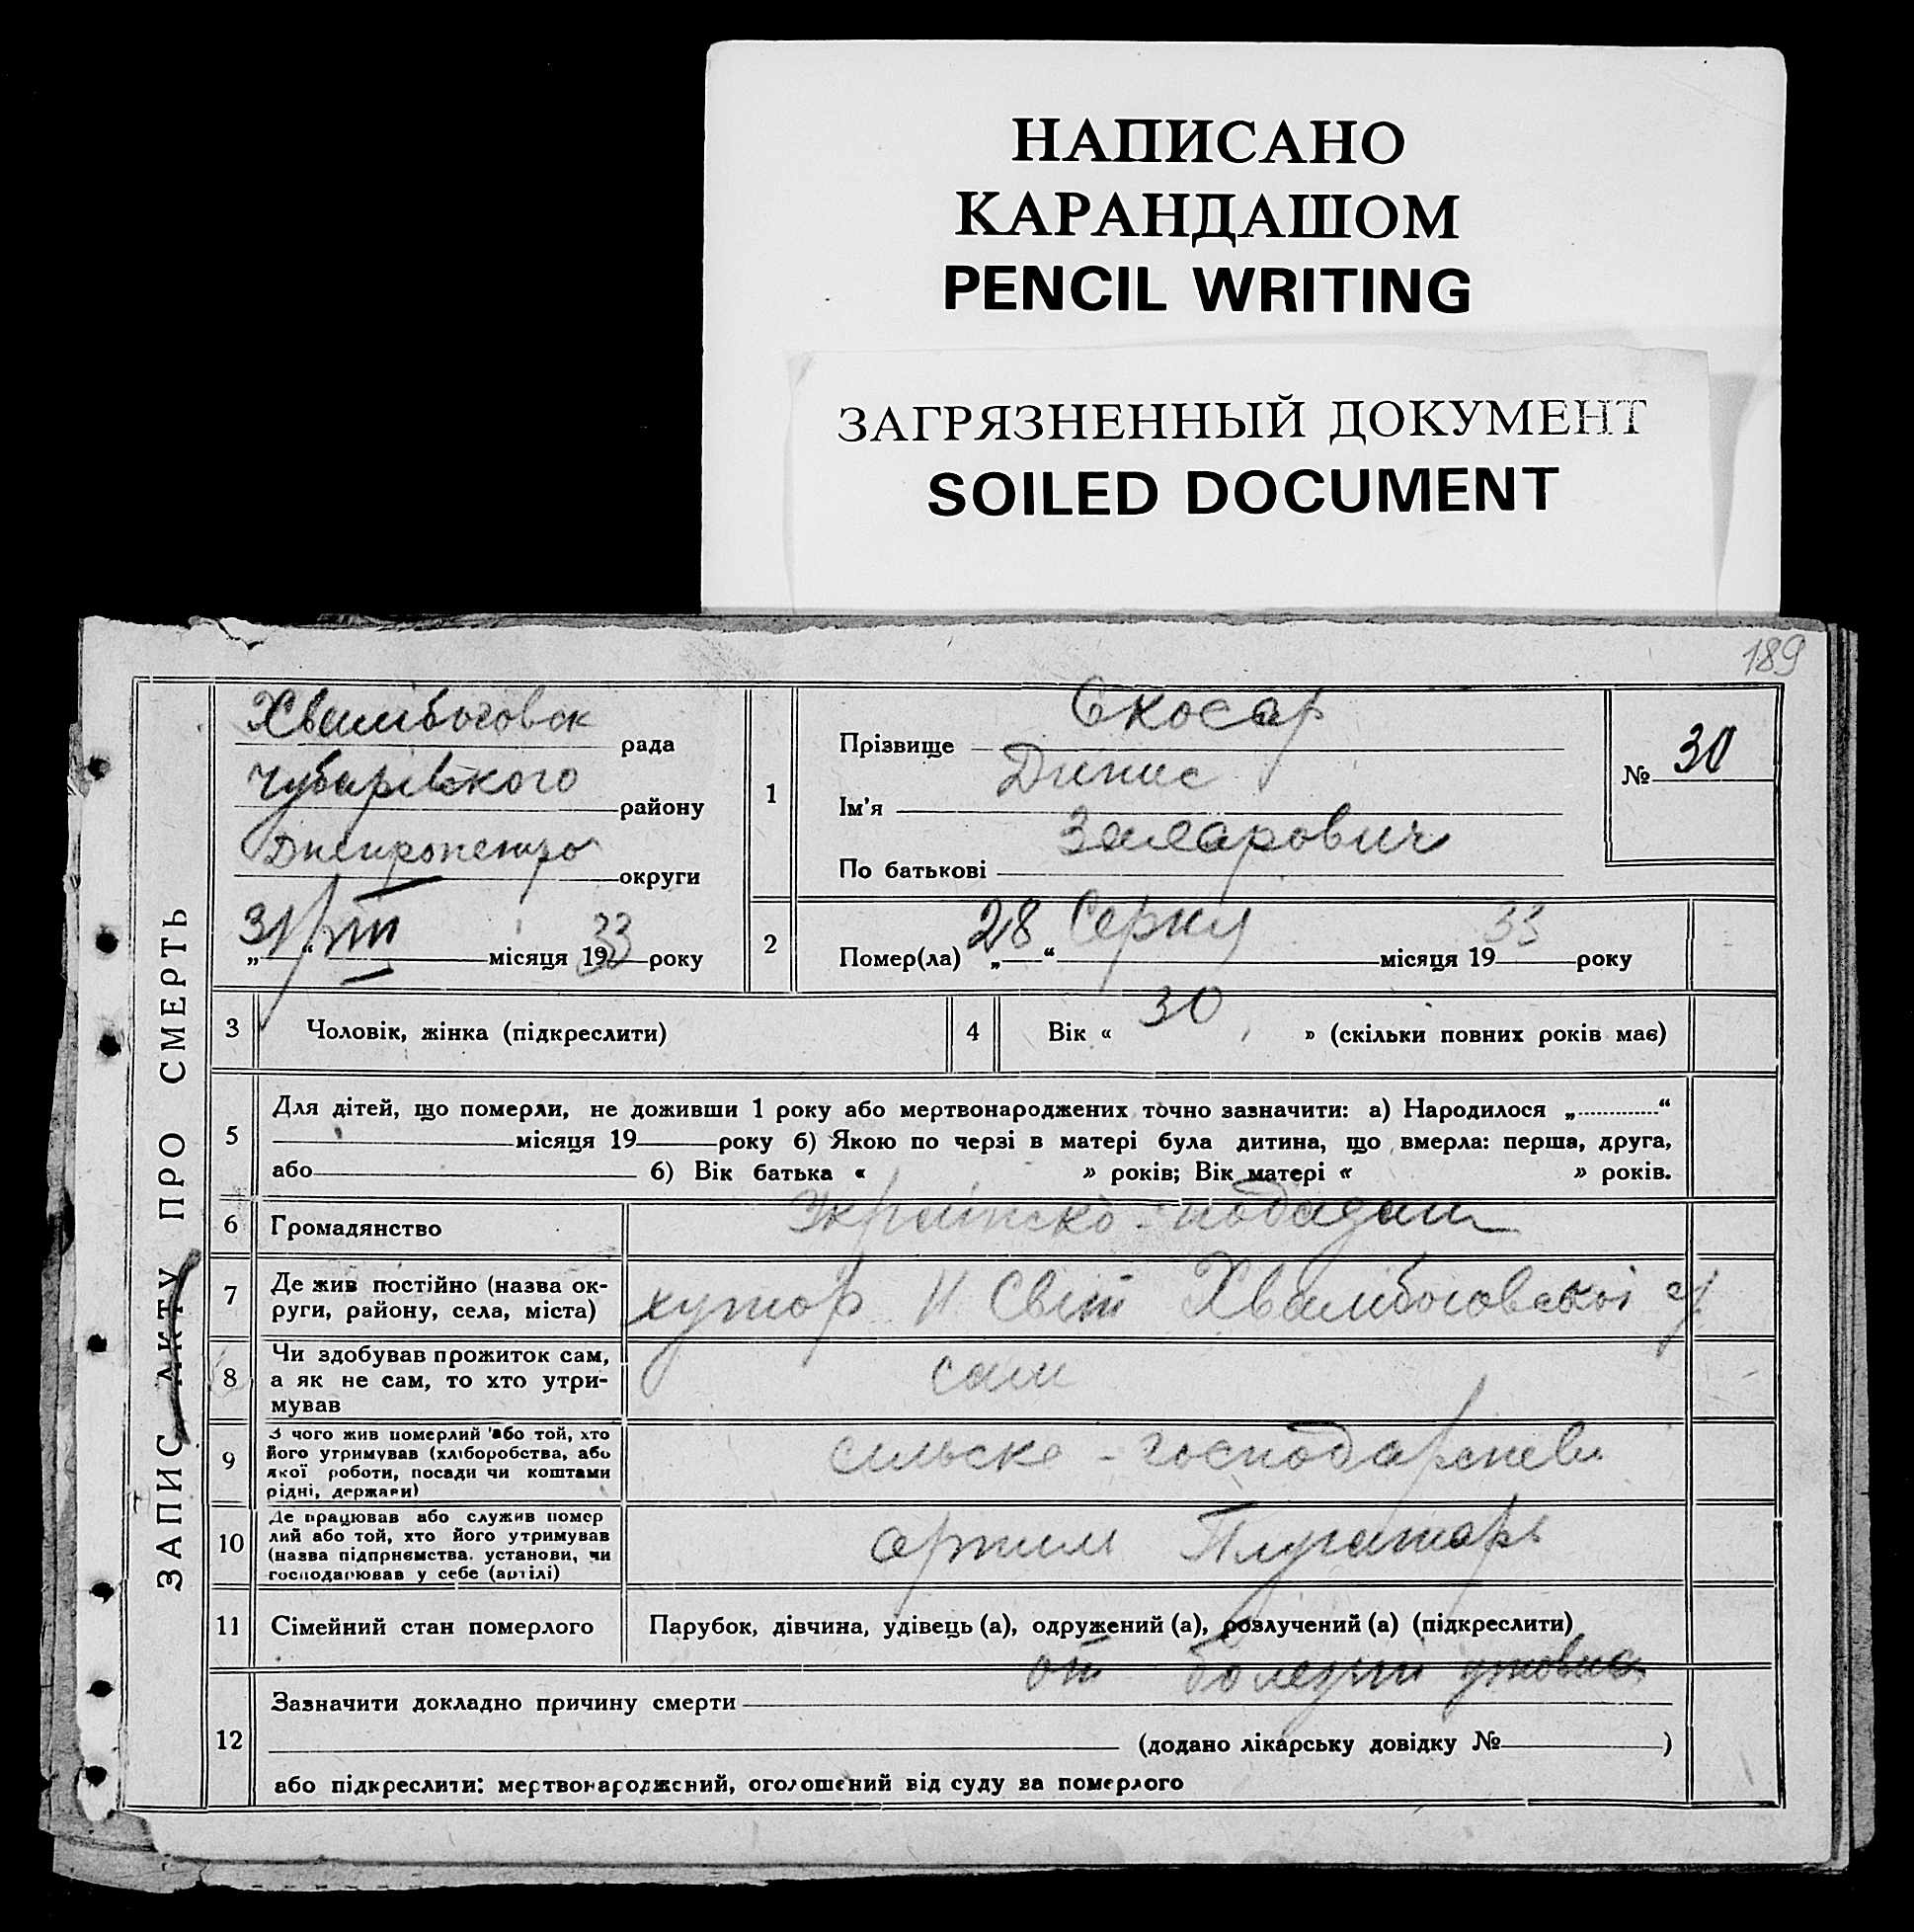 НАПИСАНО
КАРАНДАШОМ
PENCIL WRITING
ЗАГРЯЗНЕННЫЙ ДОКУМЕНТ
SOILED DOCUMENT
189
ЗАПИС АКТУ ПРО СМЕРТЬ
Хвалібоговск рада
Чубарівкого району
Днепропетро округи
31/VIII місяця 1933 року
1
Прізвище Скосар
Ім'я Динис
По батькові
№ 30
2
Помер(ла) „28“ Серпня місяця 1933 року
3 Чоловік, жінка (підкреслити)
4 Вік « 30 » (скільки повних років має)
5 Для дітей, що померли, не доживши 1 року або мертвонароджених точно зазначити: а) Народилося „ “
місяця 19 року б) Якою по черзі в матері була дитина, що вмерла: перша, друга,
або 6) Вік батька « » років; Вік матері « » років.
6 Громадянство
7 Де жив постійно (назва ок-
руги, району, села, міста)
хутор Н Світ Хвалібоговскоі
8 Чи здобував прожиток сам,
а як не сам, то хто утри-
мував
сам
9 З чого жив померлий або той, хто
його утримував (хліборобства, або
якої роботи, посади чи коштами
рідні, держави)
сильске -
10 Де працював або служив помер
лий або той, хто його утримував
(назва підприємства. установи, чи
господарював у себе (артілі)
артил Плугатарь
11 Сімейний стан померлого
Парубок, дівчина, удівець (а), одружений (а), розлучений (а) (підкреслити)
12 Зазначити докладно причину смерти от болезни
(додано лікарську довідку № )
або підкреслити: мертвонароджений, оголошений від суду за померлого